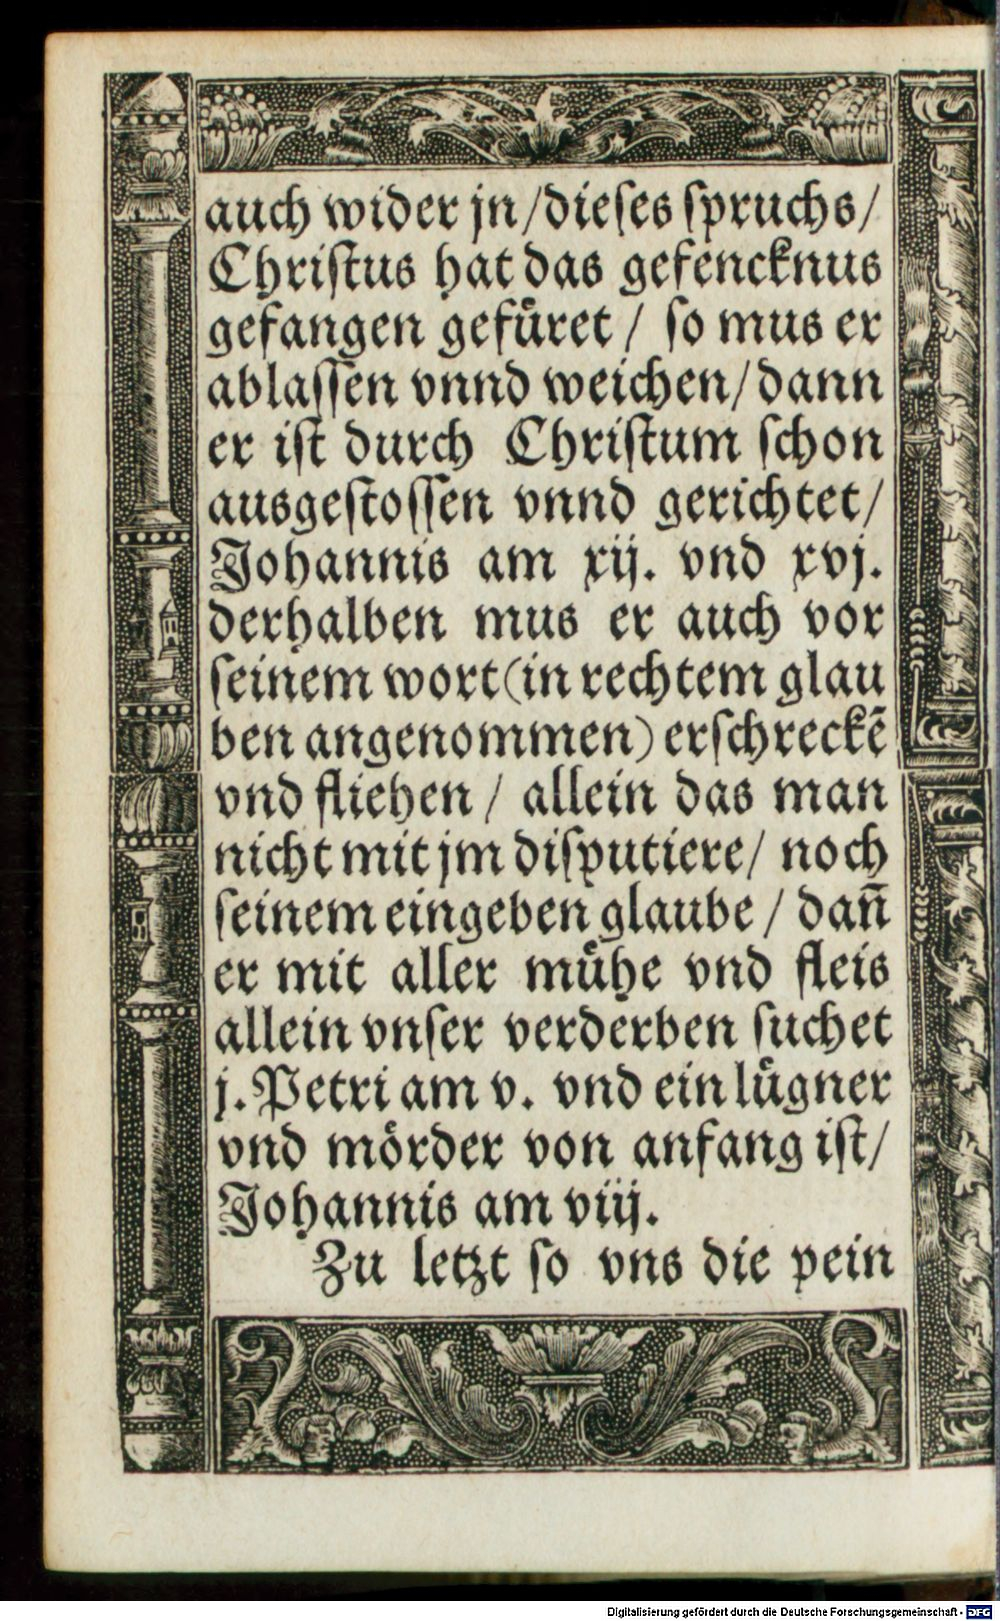 auch wider jn/dieſes ſpruchs/
Chriſtus hat das gefencknus
gefangen gefuͤret / ſo mus er
ablaſſen vnnd weichen/dann
er iſt durch Chriſtum ſchon
ausgeſtoſſen vnnd gerichtet/
Johannis am xij. vnd xvj.
derhalben mus er auch vor
ſeinem wort(in rechtem glau
ben angenommen) erſchreckē
vnd fliehen / allein das man
nicht mit jm diſputiere/ noch
ſeinem eingeben glaube / dan̄
er mit aller muͤhe vnd fleis
allein vnſer verderben ſuchet
j. Petri am v. vnd ein luͤgner
vnd moͤrder von anfang iſt/
Johannis am viij.
Zu letzt ſo vns die pein
Digitalisierung gefördert durch die Deutsche Forschungsgemeinschaft - DFG